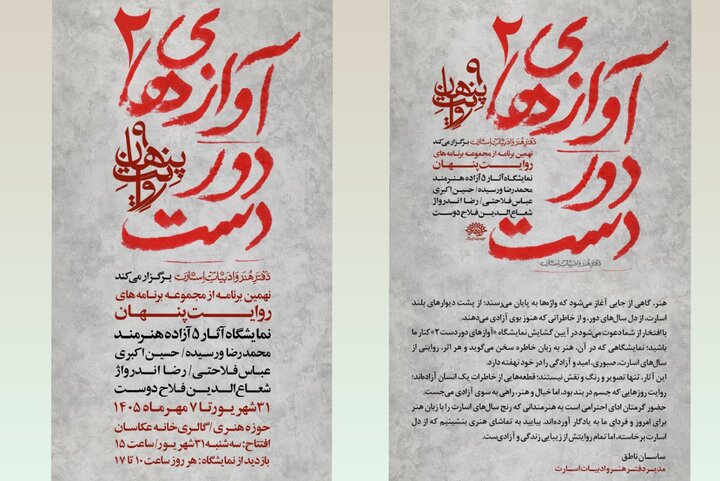 آوازهای
دوردست
۲
روایت پنهان
۹
دفتر هنر و ادبیات اسارت برگزار می‌کند
نهمین برنامه از مجموعه برنامه‌های
روایت پنهان
نمایشگاه آثار ۵ آزاده هنرمند
محمدرضا ورسیده / حسین اکبری
عباس فلاحتی / رضا اندرواژ
شعاع‌الدین فلاح دوست
۳۱ شهریور تا ۷ مهر ماه ۱۴۰۵
حوزه هنری / گالری خانه عکاسان
افتتاح: سه شنبه ۳۱ شهریور / ساعت ۱۵
بازدید از نمایشگاه: هر روز ساعت ۱۰ تا ۱۷
آوازهای
دوردست
۲
روایت پنهان
۹
دفتر هنر و ادبیات اسارت برگزار می‌کند
نهمین برنامه از مجموعه برنامه‌های
روایت پنهان
نمایشگاه آثار ۵ آزاده هنرمند
محمدرضا ورسیده / حسین اکبری
عباس فلاحتی / رضا اندرواژ
شعاع‌الدین فلاح دوست
دفتر هنر و ادبیات اسارت
هنر، گاهی از جایی آغاز می‌شود که واژه‌ها به پایان می‌رسند؛ از پشت دیوارهای بلند
اسارت، از دل سال‌های دور، و از خاطراتی که هنوز بوی آزادی می‌دهند.
با افتخار از شما دعوت می‌شود در آیین گشایش نمایشگاه «آوازهای دوردست ۲» کنار ما
باشید؛ نمایشگاهی که در آن، هنر به زبان خاطره سخن می‌گوید و هر اثر، روایتی از
سال‌های اسارت، صبوری، امید و آزادگی را در خود نهفته دارد.
این آثار، تنها تصویر و رنگ و نقش نیستند؛ قطعه‌هایی از خاطرات یک انسان آزاده‌اند؛
روایت روزهایی که جسم در بند بود، اما خیال و هنر، راهی به سوی آزادی می‌جست.
حضور گرمتان ادای احترامی است به هنرمندانی که رنج سال‌های اسارت را با زبان هنر
برای امروز و فردای ما به یادگار آورده‌اند. بیایید به تماشای هنری بنشینیم که از دل
اسارت برخاسته، اما تمام روایتش از زیبایی زندگی و آزادی‌ست.
ساسان ناطق
مدیر دفتر هنر و ادبیات اسارت